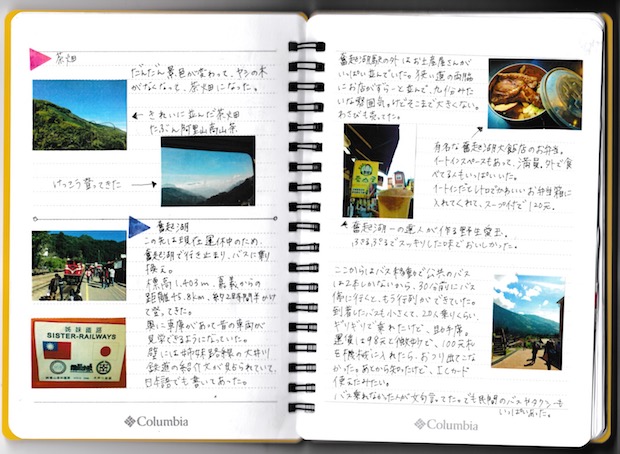 茶畑
だんだん景色が変わって、ヤシの木
がなくなって、茶畑になった。
きれいに並んだ茶畑
たぶん阿里山高山茶
けっこう登ってきた
奮起湖
この先は現在運休中のため、
奮起湖で行き止まり、バスに乗り
換え。
標高1,403m、嘉義からの
距離45.8km、約2時間半かけ
て登ってきた。
奥に車庫があって昔の車両が
見学できるようになっていた。
壁には姉妹路線の大井川
鉄道の紹介文が貼られていて、
日本語でも書いてあった。
姉妹鐵道
SISTER-RAILWAYS
Columbia
奮起湖駅の外はお土産屋さんが
いっぱい並んでいた。狭い道の両脇
にお店がずらっと並んで、九份みた
いな雰囲気。けどそこまで大きくない。
わさびも売ってた。
有名な奮起湖大飯店のお弁当。
イートインスペースもあって、満員。外で食
べてる人もいっぱいいた。
イートインだとレトロでかわいいお弁当箱に
入れてくれて、スープ付で120元。
愛玉子
奮起湖一の達人が作る野生愛玉。
ぷるぷるでスッキリした味でおいしかった。
ここからはバス移動で公共のバス
は2本しかないから、30分前にバス
停に行くと、もう行列ができていた。
到着したバスも小さくて、20人乗りくらい。
ギリギリで乗れたけど、助手席。
運賃は98元と微妙で、100元札
を機械に入れたら、おつり出てこな
かった。あとから気づいたけど、ICカード
使えたみたい。
バス乗れなかった人が文句言ってた。でも民間のバスやタクシーも
いっぱいあった。
Columbia